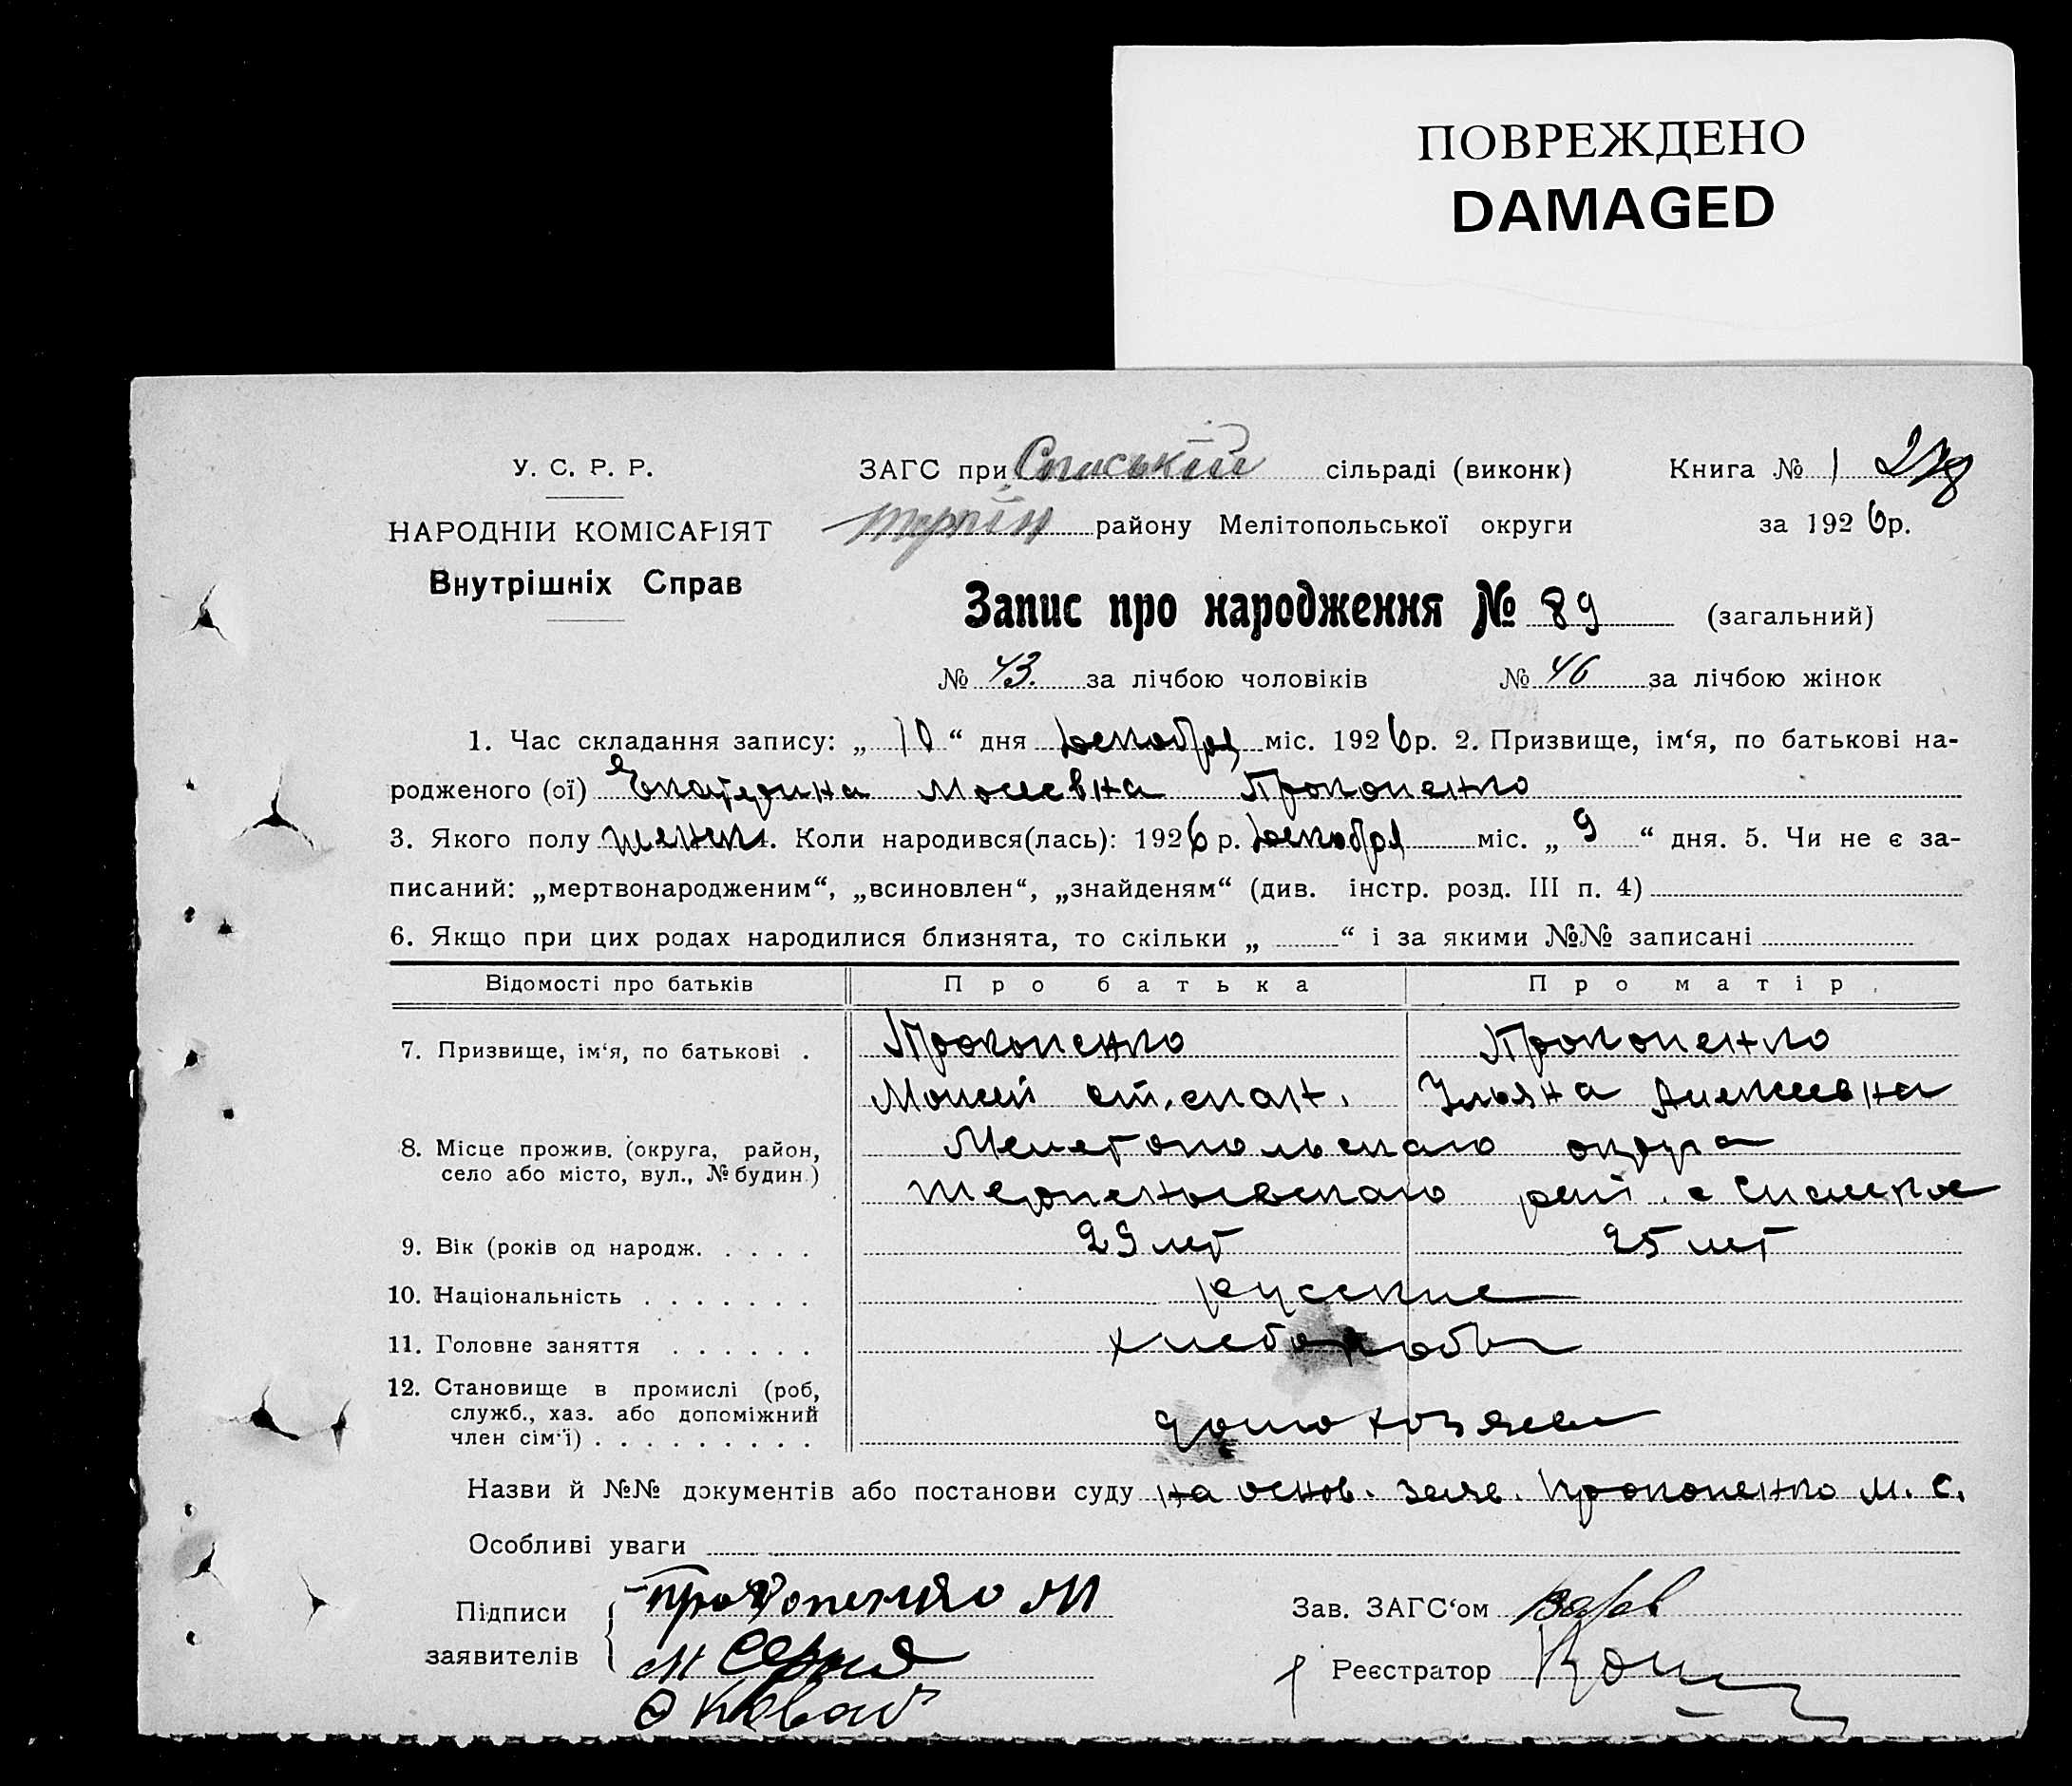 ПОВРЕЖДЕНО
DAMAGED
У. С. Р. Р.
НАРОДНІЙ КОМІСАРІЯТ
Внутрішніх Справ
ЗАГС при Спаській сільраді (виконк)
Книга № 1
району Мелітопольської округи
за 1926 р.
Запис про народження № 89 (загальний)
№ 43. за лічбою чоловіків № 46 за лічбою жінок
1. Час складання запису: „ 10 “ дня декабря міс. 1926 р. 2. Призвище, ім‘я, по батькові на-
родженого (ої) Екатерина Мосеевна Прокопенко
3. Якого полу женск. Коли народився(лась): 1926 р. декабря міс. „ 9 “ дня. 5. Чи не є за-
писаний: „мертвонародженим“, „всиновлен“, „знайденям“ (див. інстр. розд. III п. 4)
6. Якщо при цих родах народилися близнята, то скільки „ “ і за якими №№ записані
Відомості про батьків Про батька Про матір
7. Призвище, ім‘я, по батькові . Прокопенко Прокопенко
Моисей степан. Ульяна Алексеевна
8. Місце прожив. (округа, район,
село або місто, вул., № будин.)
Мелетопольскаго округа
терпеньевскаго рай. с Спаское
9. Вік (років од народж. . . . . 29 лет 25 лет
10. Національність . . . . . . . русские
11. Головне заняття . . . . . . хлеборобы
12. Становище в промислі (роб,
служб., хаз. або допоміжний
член сім‘ї) . . . . . . . . .
домохозяева
Назви й №№ документів або постанови суду на основ. заяв. Прокопенко М. С.
Особливі уваги
Підписи
заявителів
Прокопенко М
Зав. ЗАГС‘ом
Реєстратор